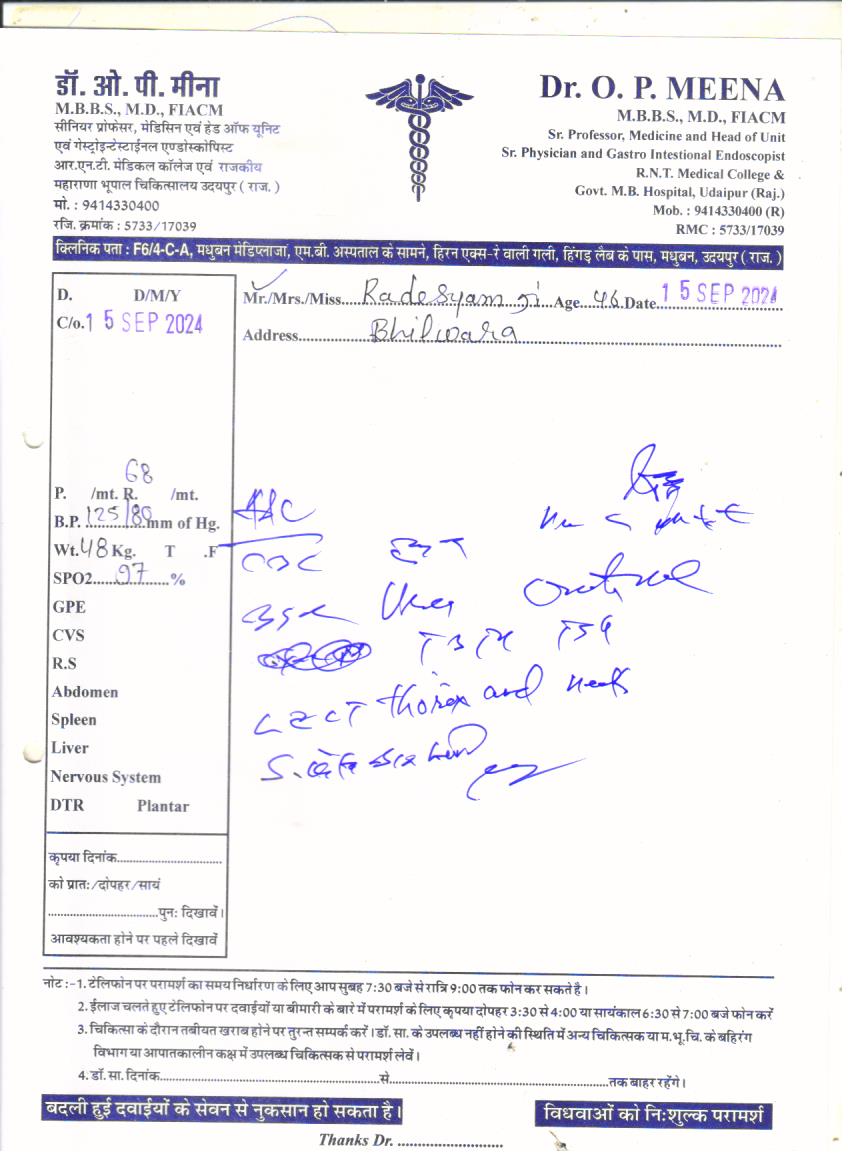 डॉ. ओ. पी. मीना
M.B.B.S., M.D., FIACM
सीनियर प्रोफेसर, मेडिसिन एवं हेड ऑफ यूनिट
एवं गेस्ट्रोइन्टेस्टाईनल एण्डोस्कोपिस्ट
आर.एन.टी. मेडिकल कॉलेज एवं राजकीय
महाराणा भूपाल चिकित्सालय उदयपुर ( राज. )
मो. : 9414330400
रजि. क्रमांक : 5733/17039
Dr. O. P. MEENA
M.B.B.S., M.D., FIACM
Sr. Professor, Medicine and Head of Unit
Sr. Physician and Gastro Intestional Endoscopist
R.N.T. Medical College &
Govt. M.B. Hospital, Udaipur (Raj.)
Mob. : 9414330400 (R)
RMC : 5733/17039
क्लिनिक पता : F6/4-C-A, मधुबन मेडिप्लाजा, एम.बी. अस्पताल के सामने, हिरन एक्स-रे वाली गली, हिंगड़ लैब के पास, मधुबन, उदयपुर ( राज. )
D. D/M/Y
C/o. 15 SEP 2024
Mr./Mrs./Miss.....Radesyam ji Age...46 Date 15 SEP 2024
Address.....Bhilwara
68
P. /mt. R. /mt.
B.P. 125/80 mm of Hg.
Wt. 48 Kg. T .F
SPO2.....97.....%
GPE
CVS
R.S
Abdomen
Spleen
Liver
Nervous System
DTR Plantar
CBC
Urea
T3 T4 TSH
CECT thorax and neck
कृपया दिनांक................................
को प्रातः/दोपहर/सायं
..................................पुनः दिखावें।
आवश्यकता होने पर पहले दिखावें
नोट :-1. टेलिफोन पर परामर्श का समय निर्धारण के लिए आप सुबह 7:30 बजे से रात्रि 9:00 तक फोन कर सकते है।
2. ईलाज चलते हुए टेलिफोन पर दवाईयों या बीमारी के बारे में परामर्श के लिए कृपया दोपहर 3:30 से 4:00 या सायंकाल 6:30 से 7:00 बजे फोन करें
3. चिकित्सा के दौरान तबीयत खराब होने पर तुरन्त सम्पर्क करें। डॉ. सा. के उपलब्ध नहीं होने की स्थिति में अन्य चिकित्सक या म.भू.चि. के बहिरंग
विभाग या आपातकालीन कक्ष में उपलब्ध चिकित्सक से परामर्श लेवें।
4. डॉ. सा. दिनांक..............................से..............................तक बाहर रहेंगे।
बदली हुई दवाईयों के सेवन से नुकसान हो सकता है।
विधवाओं को निःशुल्क परामर्श
Thanks Dr. ..........................